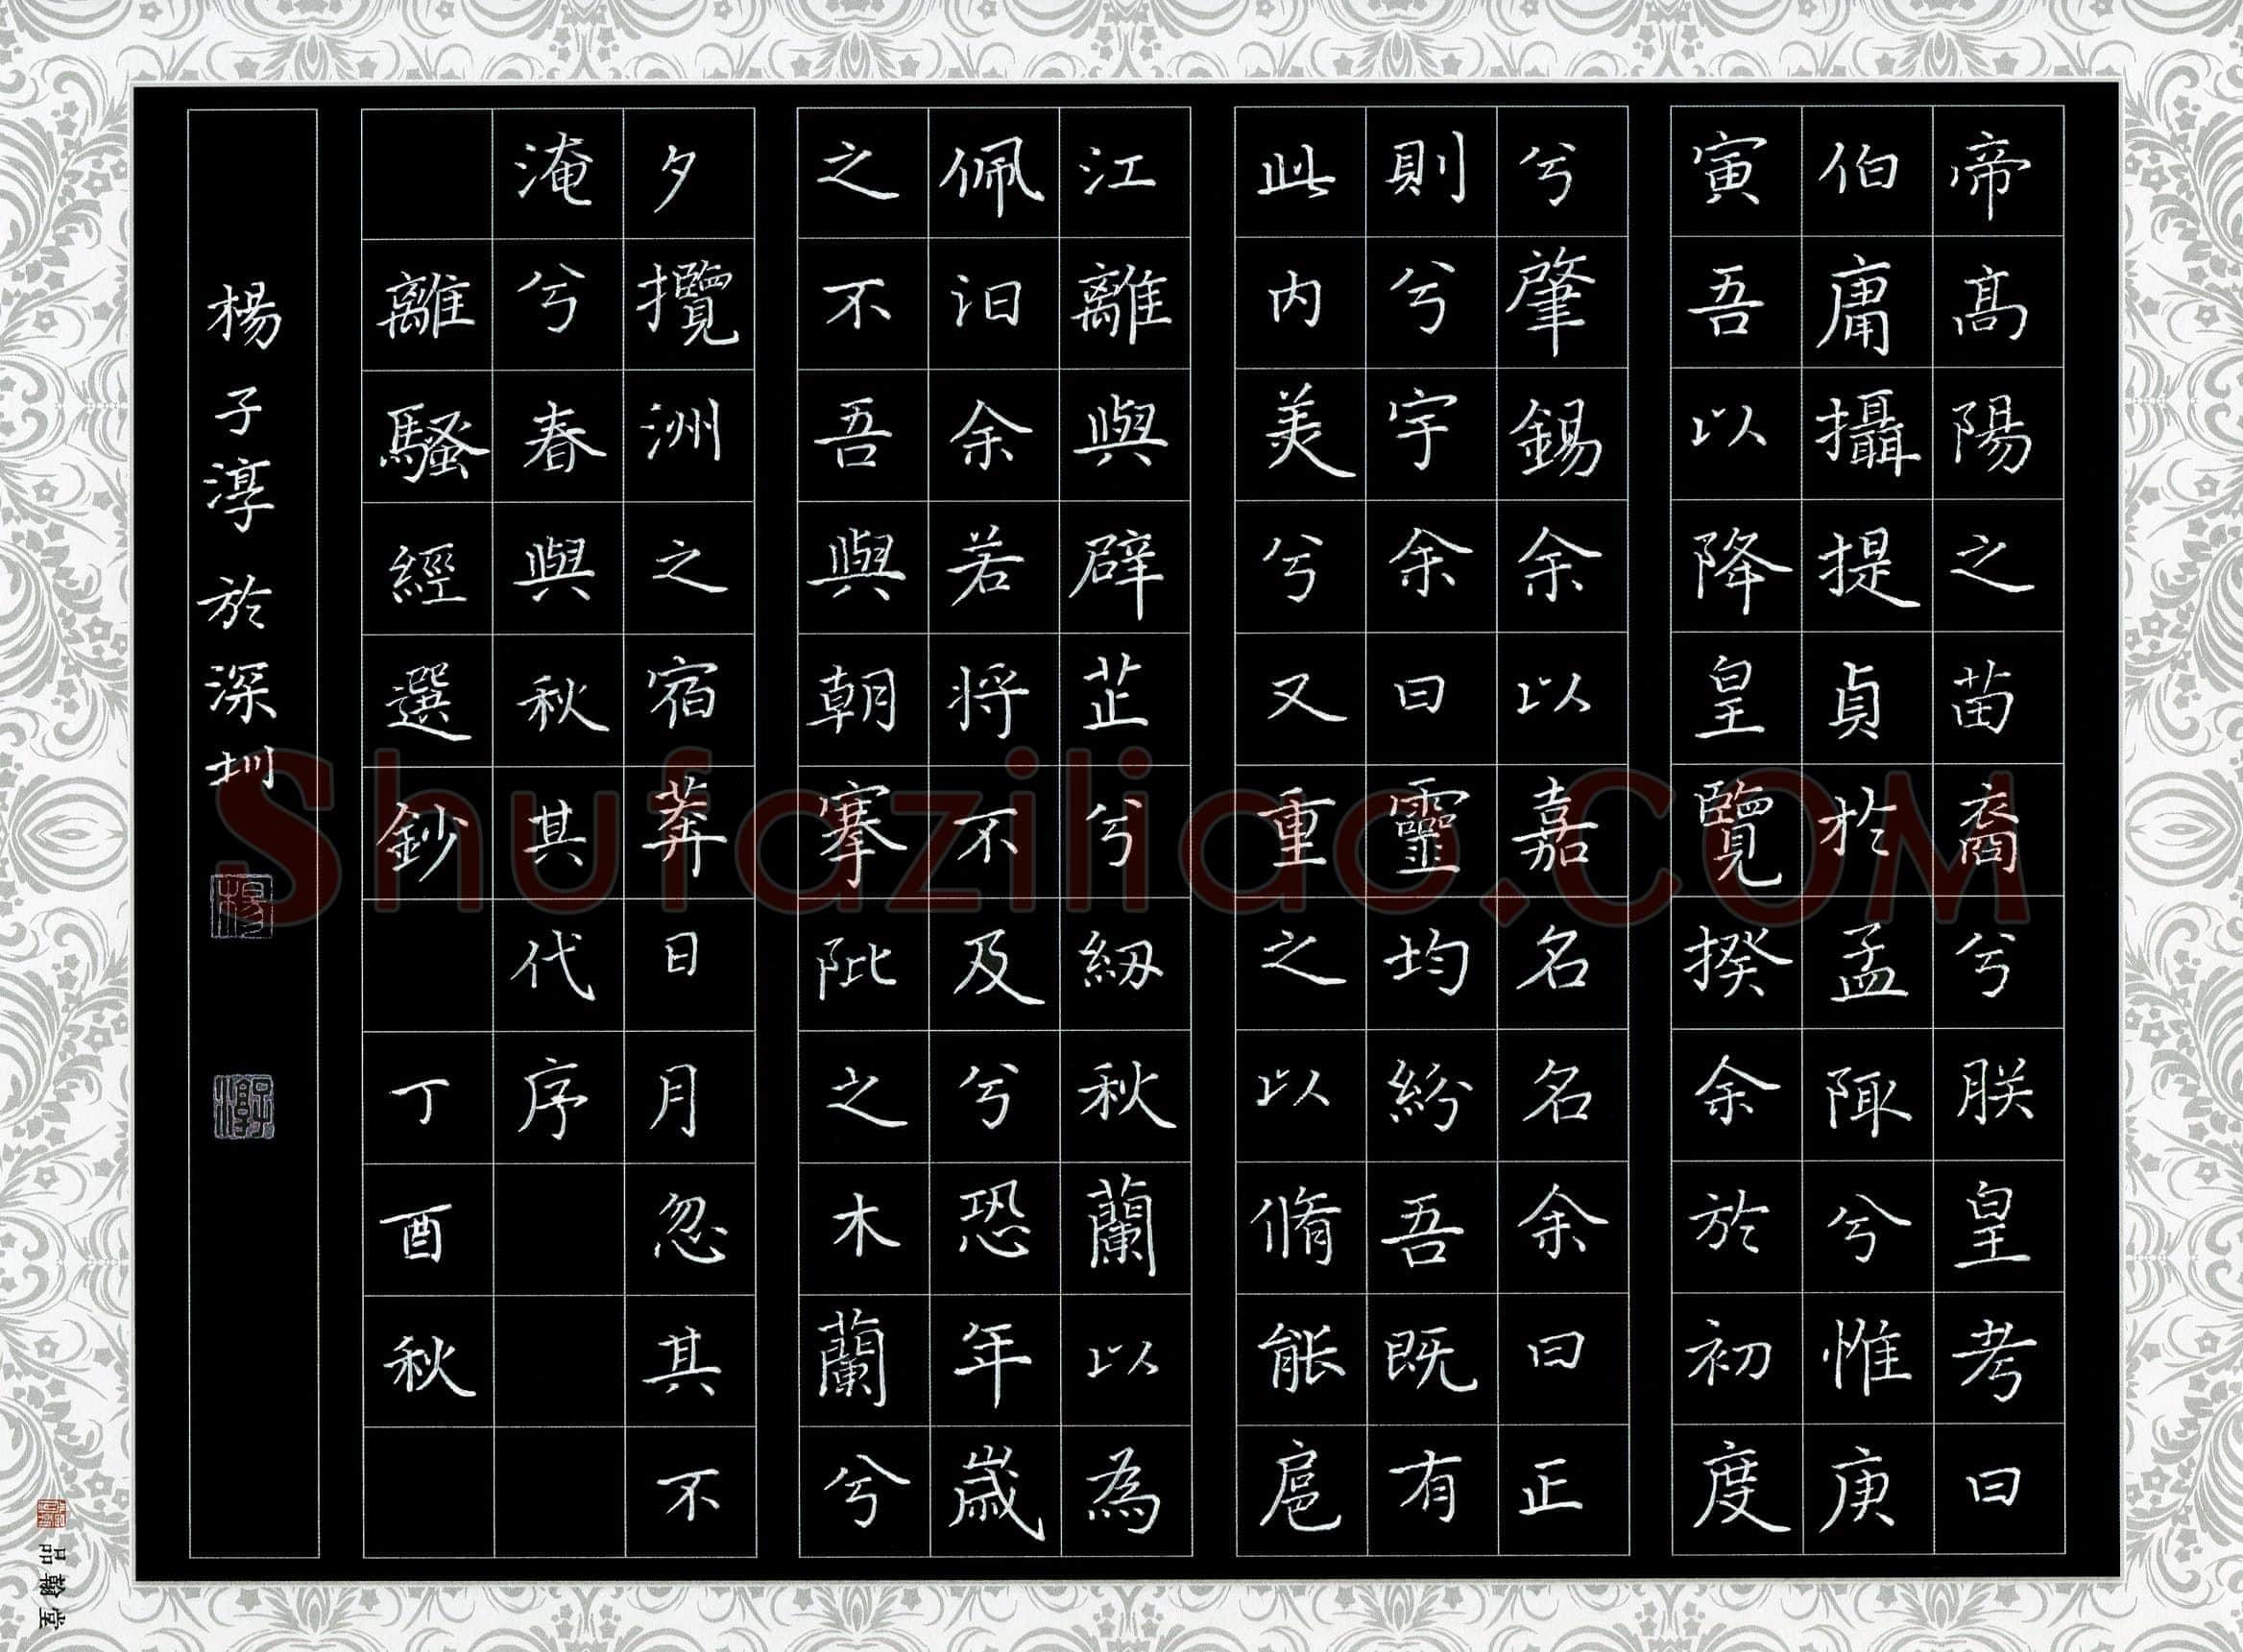 帝高陽之苗裔兮朕皇考曰
伯庸攝提貞於孟陬兮惟庚
寅吾以降皇覽揆余於初度
兮肇錫余以嘉名名余曰正
則兮字余曰靈均紛吾既有
此内美兮又重之以脩能扈
江離與辟芷兮紉秋蘭以為
佩汩余若將不及兮恐年歲
之不吾與朝搴阰之木蘭兮
夕攬洲之宿莽日月忽其不
淹兮春與秋其代序
離騷經選鈔 丁酉秋
楊子淳於深圳
楊
品翰堂
Shufaziliao.COM